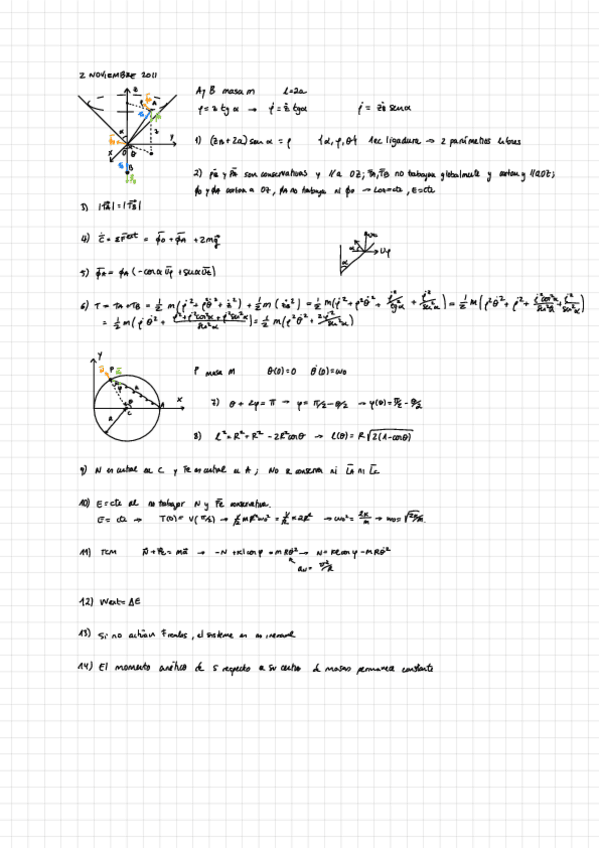 2 NOVIEMBRE 2011
A y B masa m l=2a
ρ = z tg α → ρ̇ = ż tg α ρ̇ = żB sen α
1) (zB + 2a) sen α = ρ {α, ρ, θ} 1 ec ligadura → 2 parámetros libres
2) son conservativas y // a OZ; no trabajan globalmente y cortan y // a OZ;
cortan a OZ, no trabaja ni → = cte, E = cte
3) |TA| = |TB|
4) Ċ = ΣF ext = φO + φA + 2mg
5) φA = φA (-cos α uρ + sen α uz)
6) T = TA + TB = 1/2 m(ρ̇² + ρ²θ̇² + ż²) + 1/2 m(żB²) = 1/2 m(ρ̇² + ρ²θ̇² + ρ̇²/tg²α + ρ̇²/sen²α) = 1/2 m(ρ²θ̇² + ρ̇² + ρ̇²cos²α/sen²α + ρ̇²/sen²α)
= 1/2 m(ρ²θ̇² + = 1/2 m(ρ²θ̇² + 2ρ̇²/sen²α)
P masa m θ(0)=0 θ̇(0)=ω0
7) θ + 2φ = π → φ = π/2 - θ/2 → φ(θ) = π/2 - θ/2
8) l² = R² + R² - 2R² cos θ → l(θ) = R√2(1-cos θ)
9) N es central a C y Fe es central a A; No se conserva ni LA ni LC
10) E = cte al no trabajar N y Fe conservativa.
E = cte → T(0) = V(π/2) → 1/2 m R²ω0² = K/2 × 2R² → ω0² = 2K/m → ω0 = √2K/m.
11) TCM N + Fe = ma → -N + Kl cos φ = mRθ̇² → N = Kl cos φ - mRθ̇²
aN = v²/R
12) Wext = ΔE
13) Si no actúan Fuerzas, el sistema
14) El momento cinético de S respecto a su centro de masas permanece constante